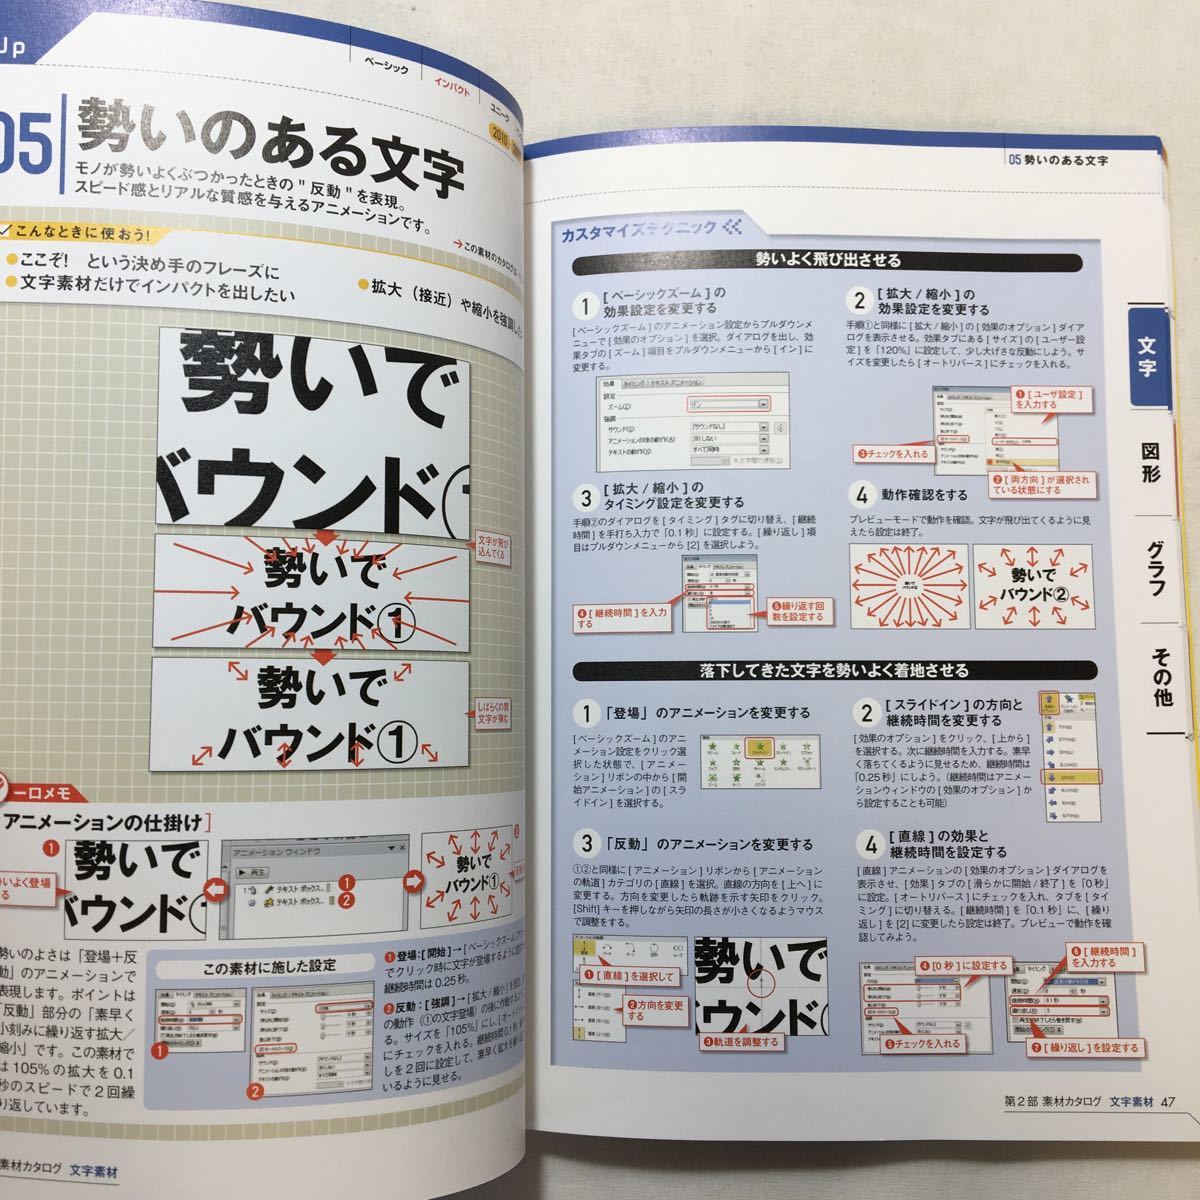 Up
ベーシック
インパクト
ユニーク
2010
05
勢いのある文字
モノが勢いよくぶつかったときの"反動"を表現。
スピード感とリアルな質感を与えるアニメーションです。
→この素材のカタログ
こんなときに使おう!
●ここぞ! という決め手のフレーズに
●文字素材だけでインパクトを出したい
●拡大(接近)や縮小を強調した
勢いで
バウンド①
文字が飛び
込んでくる
勢いで
バウンド①
しばらくの間
文字が弾む
勢いで
バウンド①
一口メモ
アニメーションの仕掛け]
❶
いよく登場
する
勢いで
バウンド①
アニメーション ウィンドウ
再生
テキスト ボックス...
テキスト ボックス...
❶
❷
勢いで
バウンド①
勢いのよさは「登場+反
動」のアニメーションで
表現します。ポイントは
「反動」部分の「素早く
小刻みに繰り返す拡大/
縮小」です。この素材で
は105%の拡大を0.1
秒のスピードで2回繰
り返しています。
この素材に施した設定
❶
❷
❶登場:[開始]→[ベーシックズーム(ア
でクリック時に文字が登場するように設定
継続時間は0.25秒。
❷反動:[強調]→[拡大/縮小]を設定
の動作(①の文字登場)の後に作動するよ
る。サイズを「105%」にし、[オート
にチェックを入れる。継続時間0.1秒、繰り
しを2回に設定して、素早く拡大を繰り
いるように見せる。
素材カタログ 文字素材
05 勢いのある文字
カスタマイズテクニック
勢いよく飛び出させる
1 [ベーシックズーム]の
効果設定を変更する
[ベーシックズーム]のアニメーション設定からプルダウンメ
ニューで[効果のオプション]を選択。ダイアログを出し、効
果タブの[ズーム]項目をプルダウンメニューから[イン]に
変更する。
効果 タイミング テキスト アニメーション
設定
ズーム(Z): イン
強調
サウンド(S): [サウンドなし]
アニメーションの後の動作(A): 淡くしない
テキストの動作(X): すべて同時
2 [拡大/縮小]の
効果設定を変更する
手順①と同様に[拡大/縮小]の[効果のオプション]ダイア
ログを表示させる。効果タブにある[サイズ]の[ユーザー設
定]を「120%」に設定して、少し大げさな反動にしよう。サ
イズを変更したら[オートリバース]にチェックを入れる。
❶[ユーザ設定]
を入力する
❸チェックを入れる
❷[両方向]が選択され
ている状態にする
3 [拡大/縮小]の
タイミング設定を変更する
手順②のダイアログを[タイミング]タグに切り替え、[継続
時間]を手打ち入力で「0.1秒」に設定する。[繰り返し]項
目はプルダウンメニューから[2]を選択しよう。
❹[継続時間]を入力
する
❺繰り返す回
数を設定する
4 動作確認をする
プレビューモードで動作を確認。文字が飛び出てくるように見
えたら設定は終了。
勢いで
バウンド②
落下してきた文字を勢いよく着地させる
1 「登場」のアニメーションを変更する
[ベーシックズーム]のアニ
メーション設定をクリック選
択した状態で、[アニメー
ション]リボンの中から[開
始アニメーション]の[スラ
イドイン]を選択する。
2 [スライドイン]の方向と
継続時間を変更する
[効果のオプション]をクリック、[上から]
を選択する。次に継続時間を入力する。素早
く落ちてくるように見せるため、継続時間は
「0.25秒」にしよう。(継続時間はアニメー
ションウィンドウの[効果のオプション]か
ら設定することも可能)
3 「反動」のアニメーションを変更する
①②と同様に[アニメーション]リボンから[アニメーション
の軌跡]カテゴリの[直線]を選択。直線の方向を[上へ]に
変更する。方向を変更したら軌跡を示す矢印をクリック。
[Shift]キーを押しながら矢印の長さが小さくなるようマウス
で調整をする。
❶[直線]を選択して
❷方向を変更
する
勢いで
バウンド
❸軌道を調整する
4 [直線]の効果と
継続時間を設定する
[直線]アニメーションの[効果のオプション]ダイアログを
表示させ、[効果]タブの[滑らかに開始/終了]を「0秒」
に設定。[オートリバース]にチェックを入れ、タブを[タイ
ミング]に切り替える。[継続時間]を「0.1秒」に、[繰り
返し]を[2]に変更したら設定は終了。プレビューで動作を確
認してみよう。
❹[0秒]に設定する
❺チェックを入れる
❻[継続時間]
を入力する
❼[繰り返し]を設定する
文字
図形
グラフ
その他
第2部 素材カタログ 文字素材 47